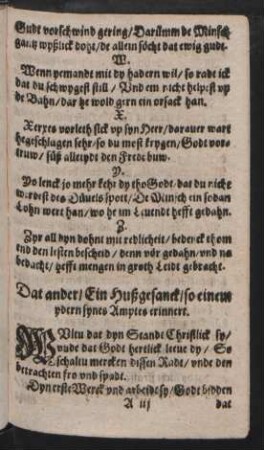 Gudt vorschwind gering / Darümm de Minsch
gantz wyßlick doht / de allein söcht dat ewig gudt.
W.
Wenn yemandt mit dy hadern wil / so rade ick
dat du schwygest still / Vnd em nicht helpest vp
de Bahn / dar he wold gern ein orsack han.
X.
Xerxes vorleth sick vp syn Heer / darauer wart
hegeschlagen sehr / so du most krygen / Godt vor-
truw / süß alleydt den Frede buw.
Y.
Yo lenck jo mehr kehr dy tho Godt / dat du nicht
werdest des Düuels spott / De Minsch ein sodan
Lohn wert han / wo he im Leuendt hefft gedahn.
Z.
Zyr all dyn dohnt mit redlicheit / bedenck thom
end den lesten bescheid / denn vör gedahn / vnd na
bedacht / hefft mengen in groth Leidt gebracht.
Dat ander / Ein Hußgesanck / so einem
ydern synes Amptes erinnert.
WUltu dat dyn Standt Christlick sy /
vnde dat Godt hertlick leue dy / So
schaltu mercken dissen Radt / vnde den
betrachten fro vnd spadt.
Dyn erste Werck vnd arbeidt sy / Godt bidden
A iij
dat